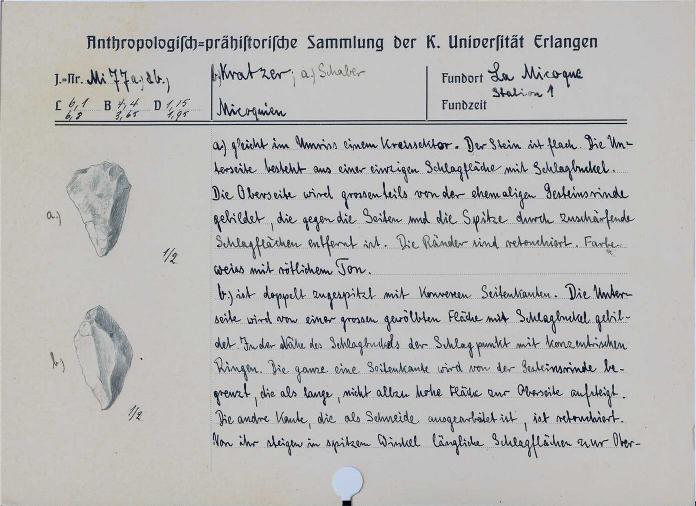 Anthropologisch=prähistorische Sammlung der K. Universität Erlangen
J.=Nr. Mi 77 a, & b,
b, Kratzer; a,) Schaber
Fundort La Micoque
Station 1
L 6,1 B 4,4 D 1,15
6,8 3,65 1,95
Micoquien
Fundzeit
a,) gleicht im Umriss einem Kreissektor. Der Stein ist flach. Die Un-
terseite besteht aus einer einzigen Schlagfläche mit Schlagbuckel.
Die Oberseite wird grossenteils von der ehemaligen Gesteinsrinde
gebildet, die gegen die Seiten und die Spitze durch zuschärfende
Schlagflächen entfernt ist. Die Ränder sind retouchiert. Farbe
weiss mit rötlichem Ton.
b,) ist doppelt zugespitzt mit konvexen Seitenkanten. Die Unter-
seite wird von einer grossen gewölbten Fläche mit Schlagbuckel gebil-
det. In der Nähe des Schlagbuckels der Schlagpunkt mit konzentrischen
Ringen. Die ganze eine Seitenkante wird von der Gesteinsrinde be-
grenzt, die als lange, nicht allzu hohe Fläche zur Oberseite aufsteigt.
Die andre Kante, die als Schneide ausgearbeitet ist, ist retouchiert.
Von ihr steigen in spitzem Winkel längliche Schlagflächen zur Ober-
a,)
1/2
b,)
1/2